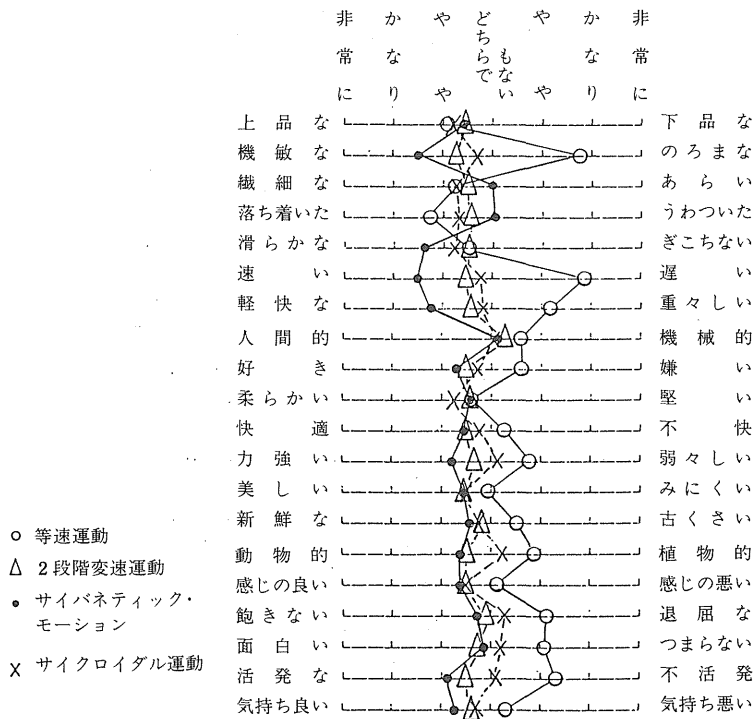 非常に かなり やや どちらでもない やや かなり 非常に
上品な 下品な
機敏な のろまな
繊細な あらい
落ち着いた うわついた
滑らかな ぎこちない
速い 遅い
軽快な 重々しい
人間的 機械的
好き 嫌い
柔らかい 堅い
快適 不快
力強い 弱々しい
美しい みにくい
新鮮な 古くさい
動物的 植物的
感じの良い 感じの悪い
飽きない 退屈な
面白い つまらない
活発な 不活発
気持ち良い 気持ち悪い
等速運動
2段階変速運動
サイバネティック・
モーション
サイクロイダル運動